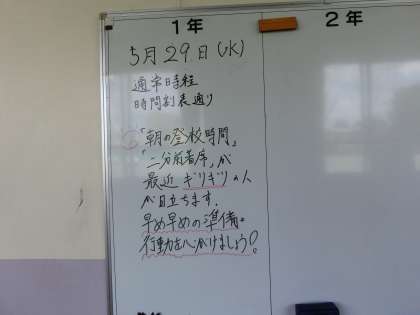 1年
2年
5月29日(水)
通常日程
時間割表通り
「朝の登校時間」
「二分前着席」が
最近ギリギリの人
が目立ちます.
早め早めの準備・
行動を心がけましょう!